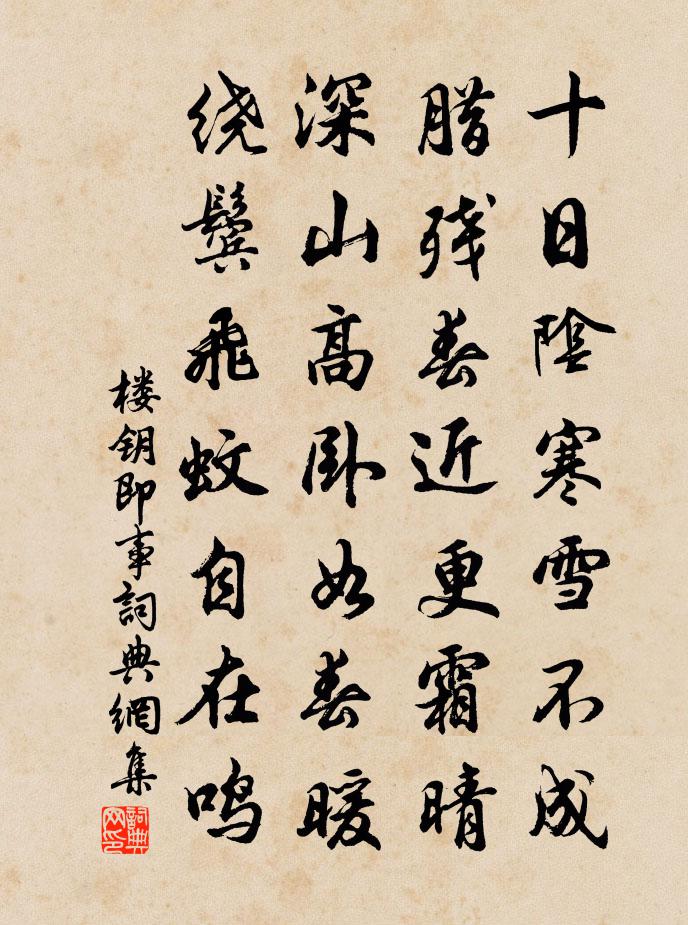 十日陰寒雪不成
腊残春近更霜晴
深山高卧如春暖
绕鬓飛蚊自在鸣
楼钥即事詞典網集
詞典网印